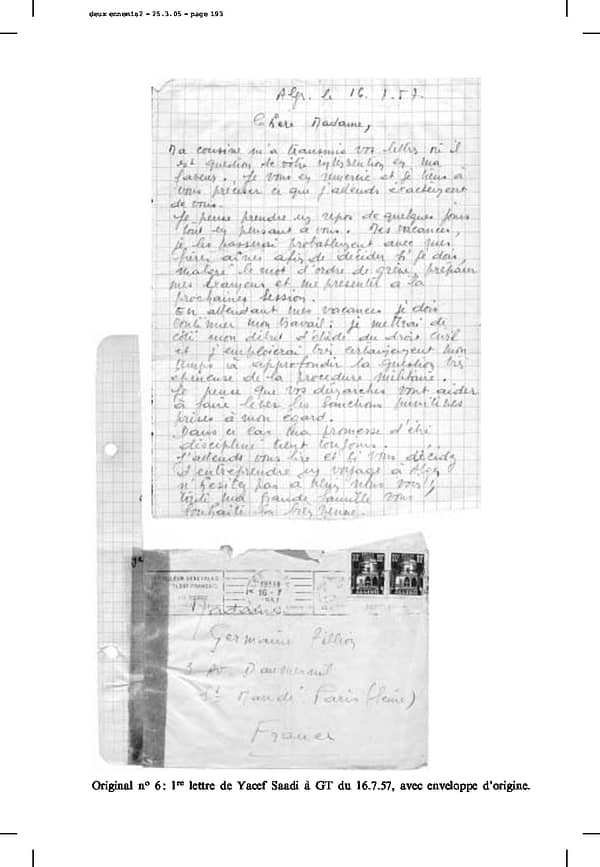 deux ennemis2 - 25.3.05 - page 193
Alger le 16.7.57.
Chère Madame,
Ma cousine m'a transmis vos lettres où il
est question de votre intervention en ma
faveur. Je vous en remercie et je tiens à
vous préciser ce que j'attends exactement
de vous.
Je pense prendre un repos de quelques jours
tout en pensant à vous. Mes vacances,
je les passerai probablement avec mes
frères aînés afin de décider si je dois,
malgré le mot d'ordre de grève, préparer
mes examens et me présenter à la
prochaine session.
En attendant mes vacances je dois
continuer mon travail: je mettrai de
côté mon début d'étude du droit civil
et j'emploierai très certainement mon
temps à approfondir la question très
épineuse de la procédure militaire.
Je pense que vos démarches vont aider
à faire lever les sanctions
prises à mon égard.
Dans ce cas ma promesse d'être
discipliné tient toujours.
J'attends vous lire et si vous décidez
d'entreprendre un voyage à Alger
n'hésitez pas à venir chez vous,
toute ma grande famille vous
souhaite la bienvenue.
16-7
ALGERIE ALGERIE
Madame
Germaine Tillion
Av. Daumesnil
St Mandé Paris (Seine)
France
Original nº 6 : 1re lettre de Yacef Saadi à GT du 16.7.57, avec enveloppe d'origine.